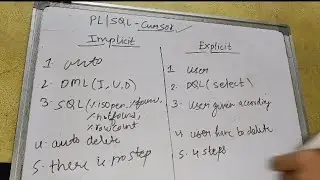 PL/SQL - Cursor
Implicit
1 auto
2- DML(I,U,D)
3- SQL(%isopen, %found,
%notfound,
%rowcount
4- auto delete
5- there is no step
Explicit
1 user
2 DQL(select)
3- user given according
4 user have to delete
5 4 steps